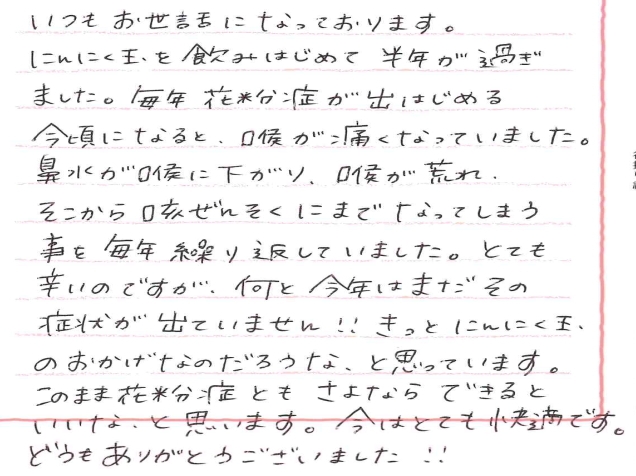 いつもお世話になっております。
にんにく玉を飲みはじめて 半年が過ぎ
ました。毎年 花粉症が出はじめる
今頃になると、喉が痛くなっていました。
鼻水が喉に下がり、喉が荒れ、
そこから咳ぜんそくにまでなってしまう
事を毎年繰り返していました。とても
辛いのですが、何と今年はまだその
症状が出ていません!! きっとにんにく玉、
のおかげなのだろうな、と思っています。
このまま花粉症とも さよなら できると
いいな、と思います。今はとても快適です。
どうもありがとうございました!!